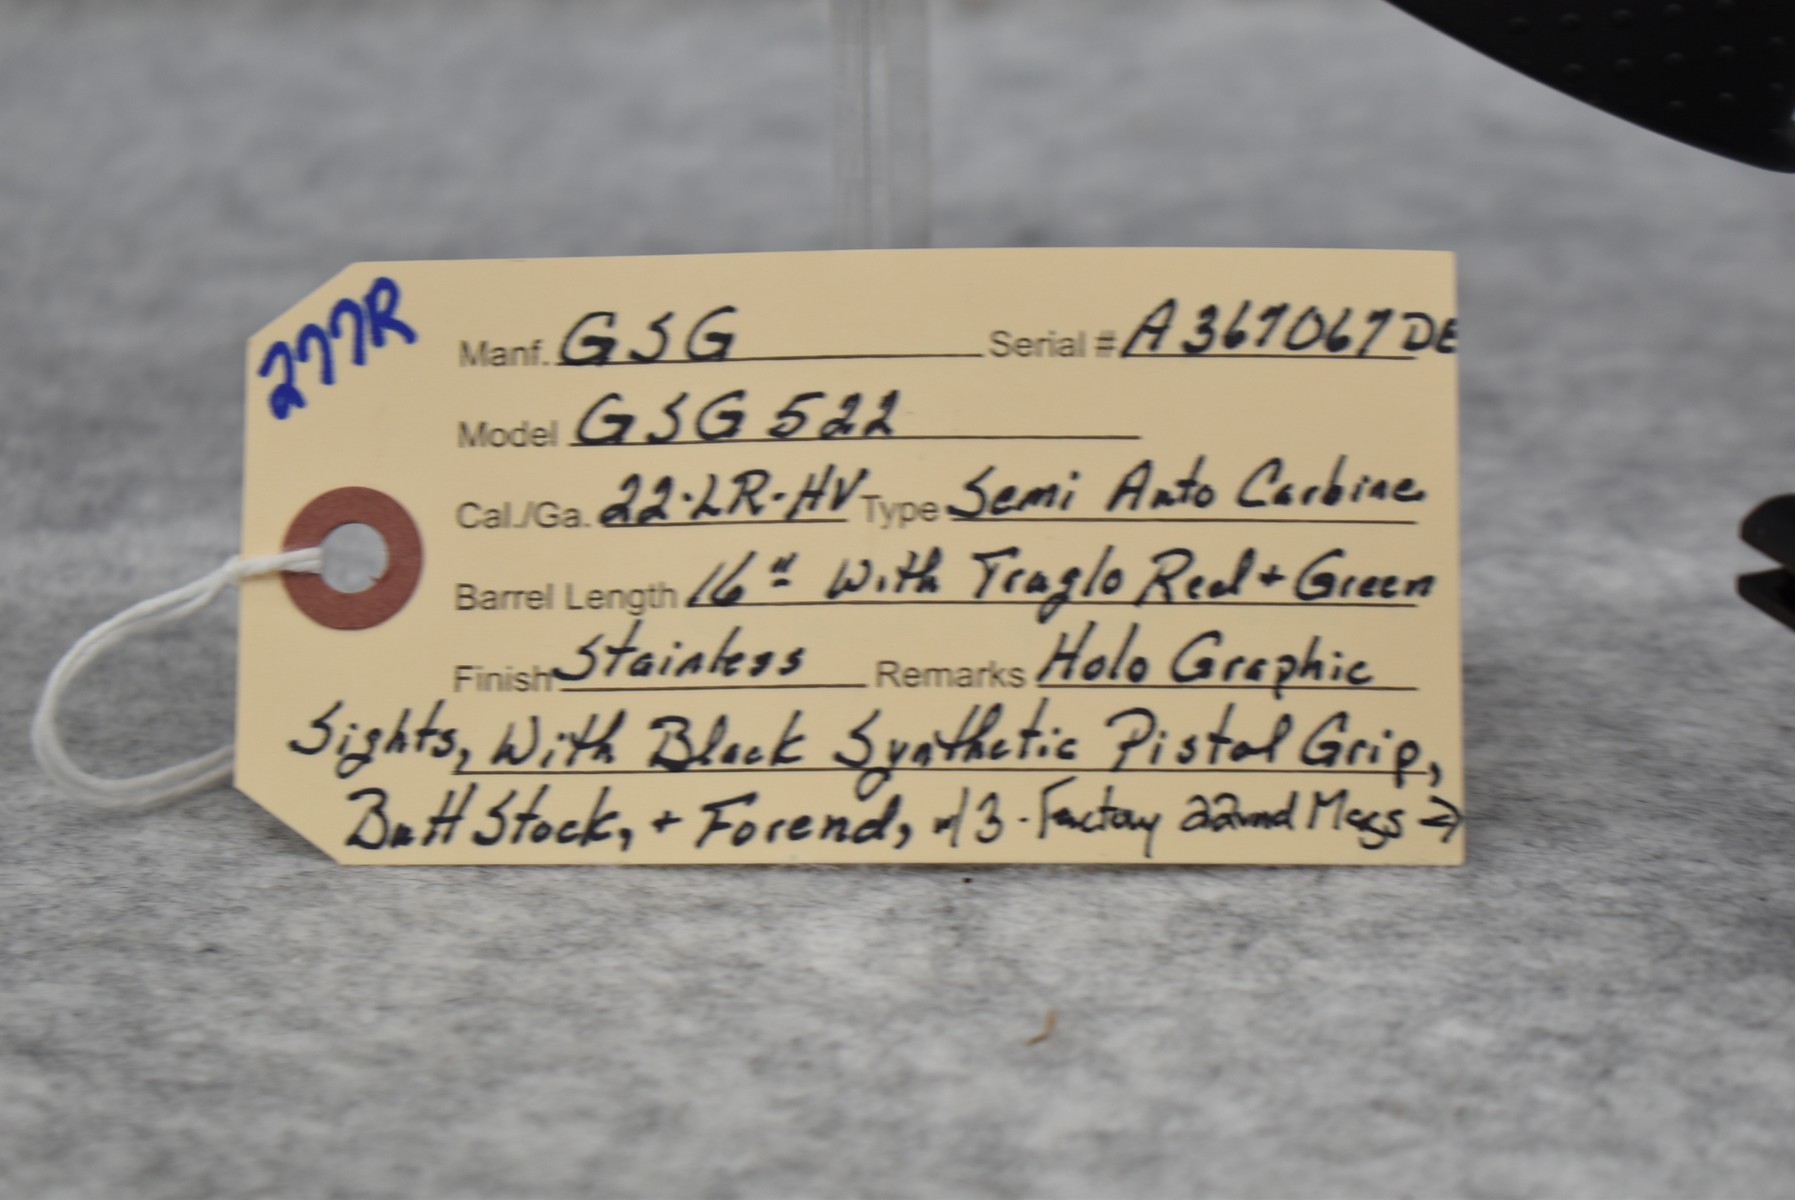 277R
Manf. GSG Serial # A367067DE
Model GSG 522
Cal./Ga. 22·LR·HV Type Semi Auto Carbine
Barrel Length 16" With Truglo Red + Green
Finish Stainless Remarks Holo Graphic
Sights, With Black Synthetic Pistol Grip,
Butt Stock, + Forend, w/ 3 - Factory 22rnd Mags →